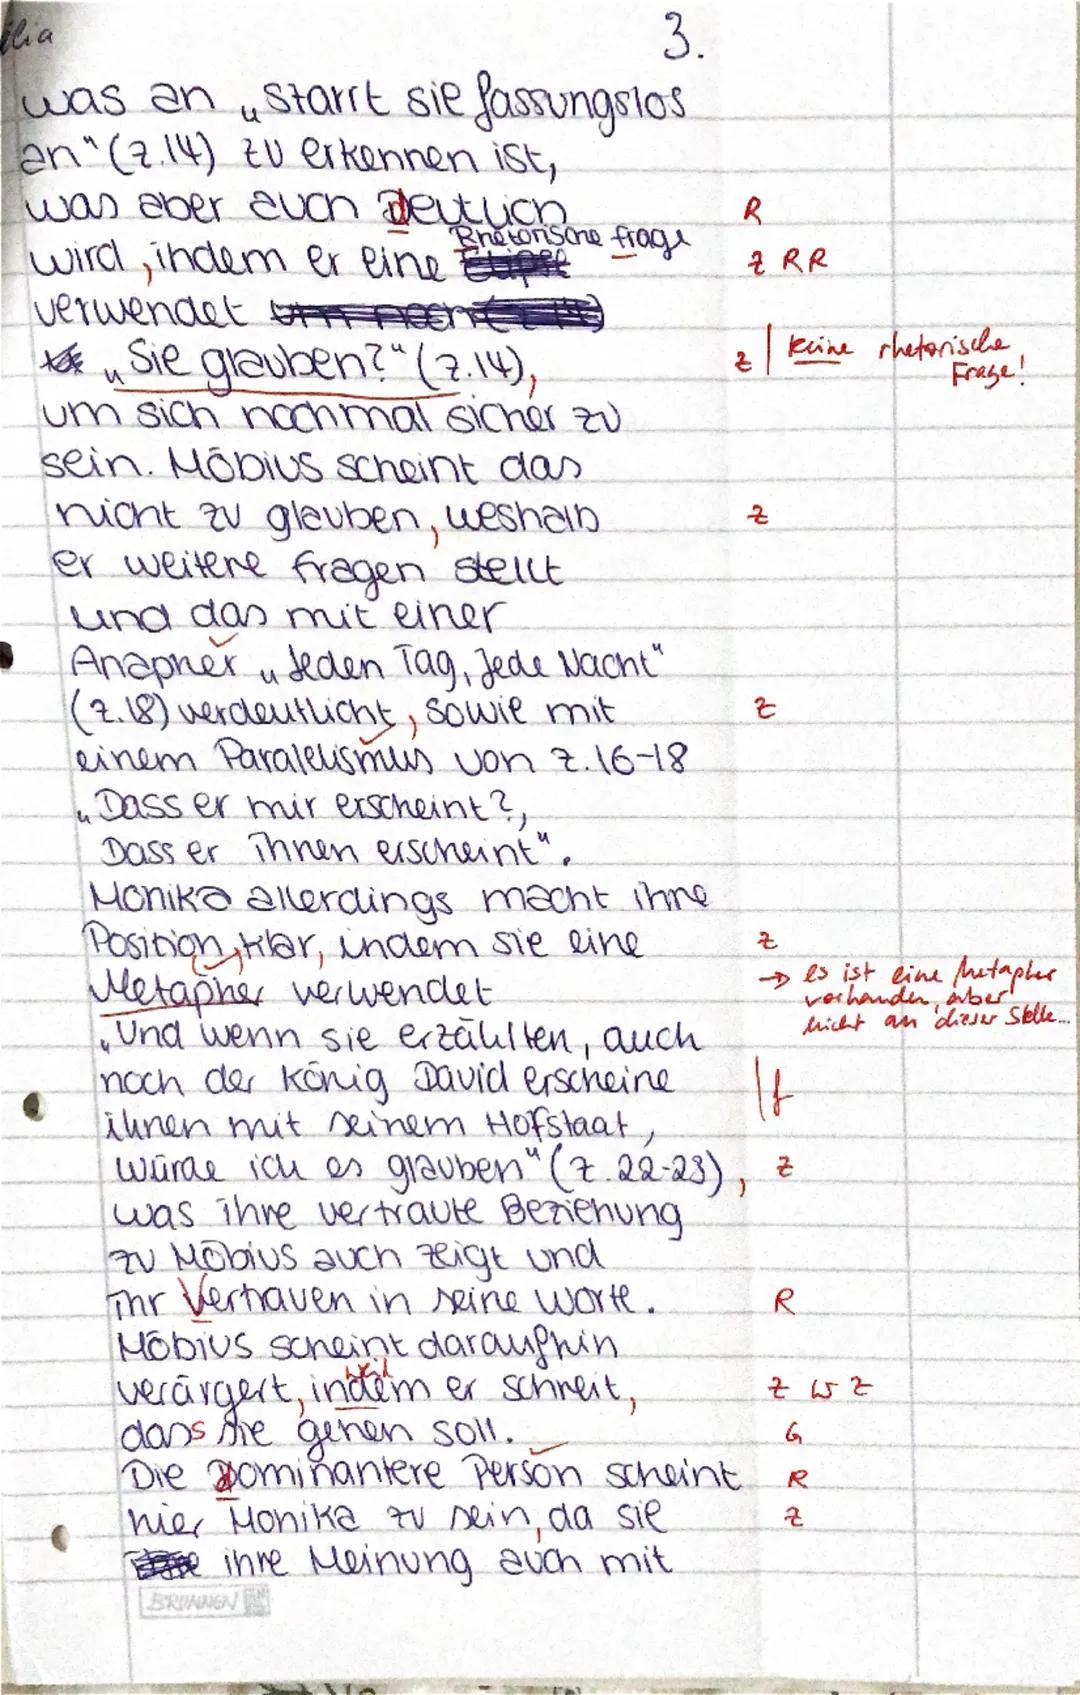 ilia
3.
was an „starrt sie fassungslos
an" (Z.14) zu erkennen ist,
was aber auch deutlich R
Rhetorische frage
wird, indem er eine Z R R
verwendet
„Sie glauben?" (Z.14), Z | keine rhetorische
Frage!
um sich nochmal sicher zu
sein. Möbius scheint das
nicht zu glauben, weshalb Z
er weitere fragen stellt
und das mit einer
Anapher „Jeden Tag, Jede Nacht"
(Z.18) verdeutlicht, sowie mit Z
einem Paralelismus von Z.16-18
„Dass er mir erscheint?,
Dass er ihnen erscheint".
Monika allerdings macht ihre
Position klar, indem sie eine Z
Metapher verwendet → es ist eine Metapher
vorhanden, aber
nicht an dieser Stelle...
„Und wenn sie erzählten, auch
noch der König David erscheine | f
ihnen mit seinem Hofstaat,
würde ich es glauben" (Z.22-23), Z
was ihre vertraute Beziehung
zu Möbius auch zeigt und
ihr Vertrauen in seine Worte. R
Möbius scheint daraufhin
weil
verärgert, indem er schreit, Z W Z
dass sie gehen soll. G
Die dominantere Person scheint R
hier Monika zu sein, da sie Z
ihre Meinung auch mit
BRUNNEN